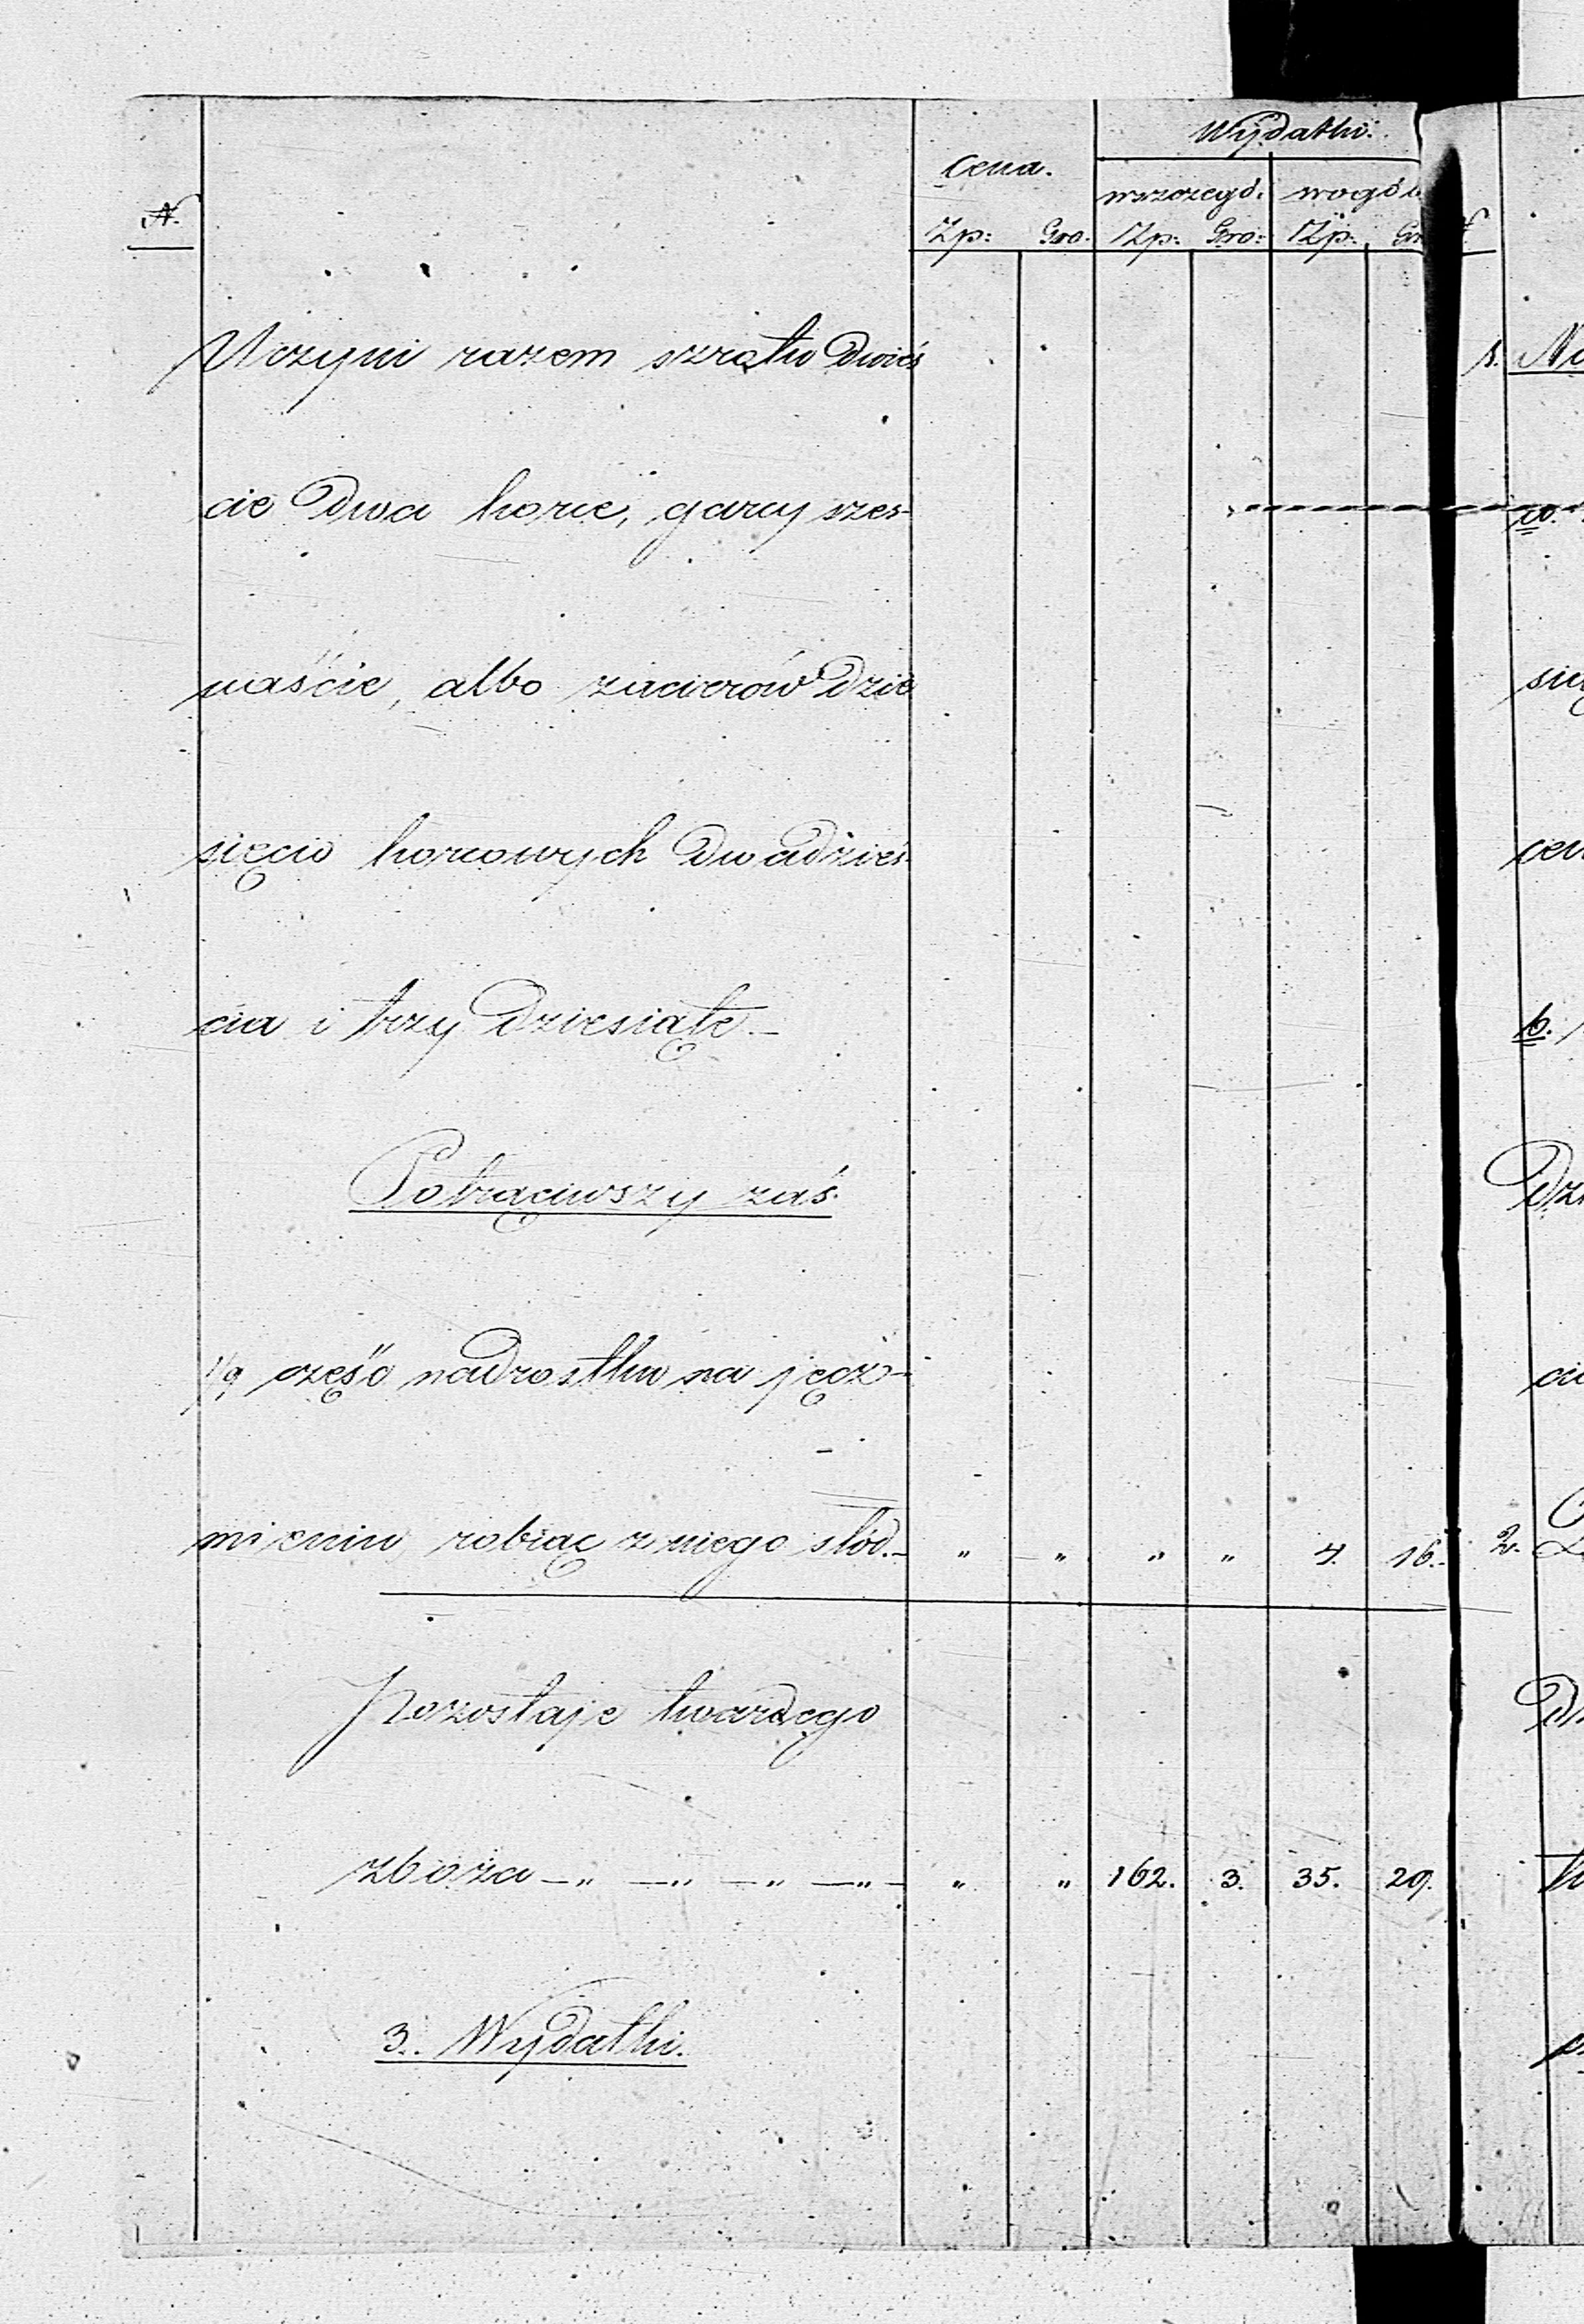 Wydatki.
Cena.
wszczegó. wogól
N.
Zp: Gro. Zp: Gro: Zp: Gr
Uczyni razem szrótu dwieś
cie dwa korce, garcy szes-
naście, albo zacierów dzie
sięcio korcowych dwadzieś
cia i trzy dziesiąte.–
Potrąciwszy zaś.
1/9 część nadrostku na jęcz-
mieniu, robiąc z niego słód.– „ „ „ „ 4. 16.–
Pozostaje twardego
zboża –„ –„ –„ –„– „ „ 162. 3. 35. 29.
3. Wydatki.
1. No
a.
się
cen
b.
Dzi
2.